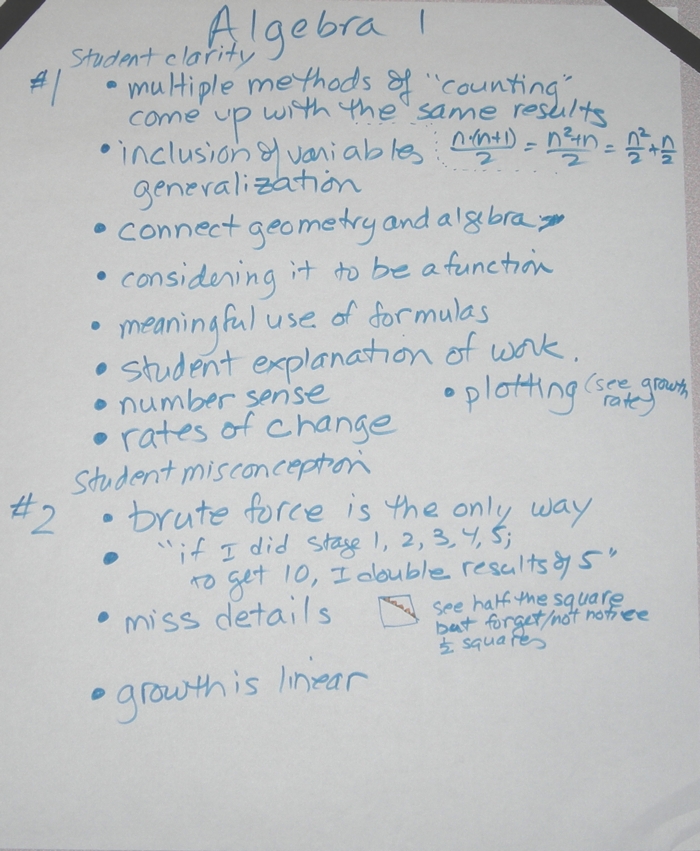 Algebra 1
Student clarity
#1
• multiple methods of "counting"
come up with the same results
• inclusion of variables : n·(n+1)/2 = n²+n/2 = n²/2 + n/2
generalization
• connect geometry and algebra
• considering it to be a function
• meaningful use of formulas
• student explanation of work.
• number sense
• plotting (see growth
rate)
• rates of change
Student misconception
#2
• brute force is the only way
• "if I did stage 1, 2, 3, 4, 5;
to get 10, I double results of 5"
• miss details
see half the square
but forget/not notice
½ squares
• growth is linear